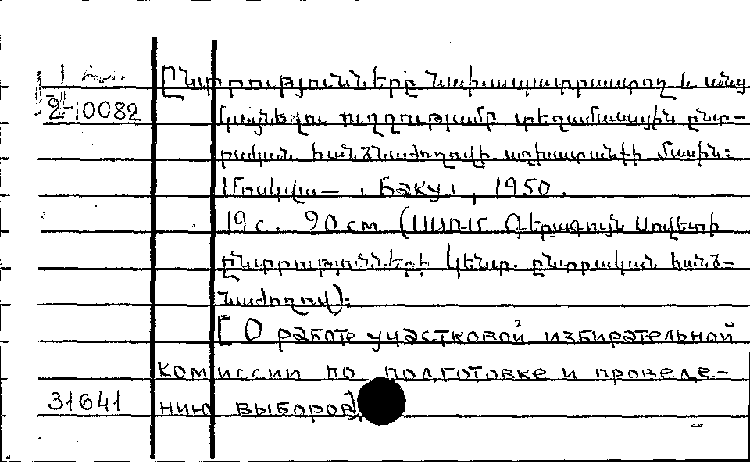 Ընտրությունները նախապատրաստող և անց
2-10082
կացնելու ուղղությամբ տեղամասային ընտ-
րական հանձնաժողովի աշխատանքի մասին:
Մոսկվա — Баку, 1950.
19 с. 20 см (ՍՍՌՄ Գերագույն Սովետի
ընտրությունների կենտ. ընտրական հանձ-
նաժողով):
[О работе участковой избирательной
комиссии по подготовке и проведе-
31641 нию выборов].